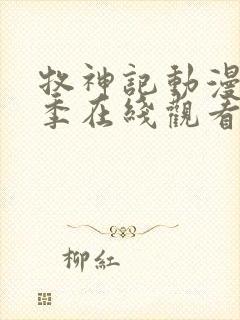 牧神記動漫
季在綫觀看
柳紅